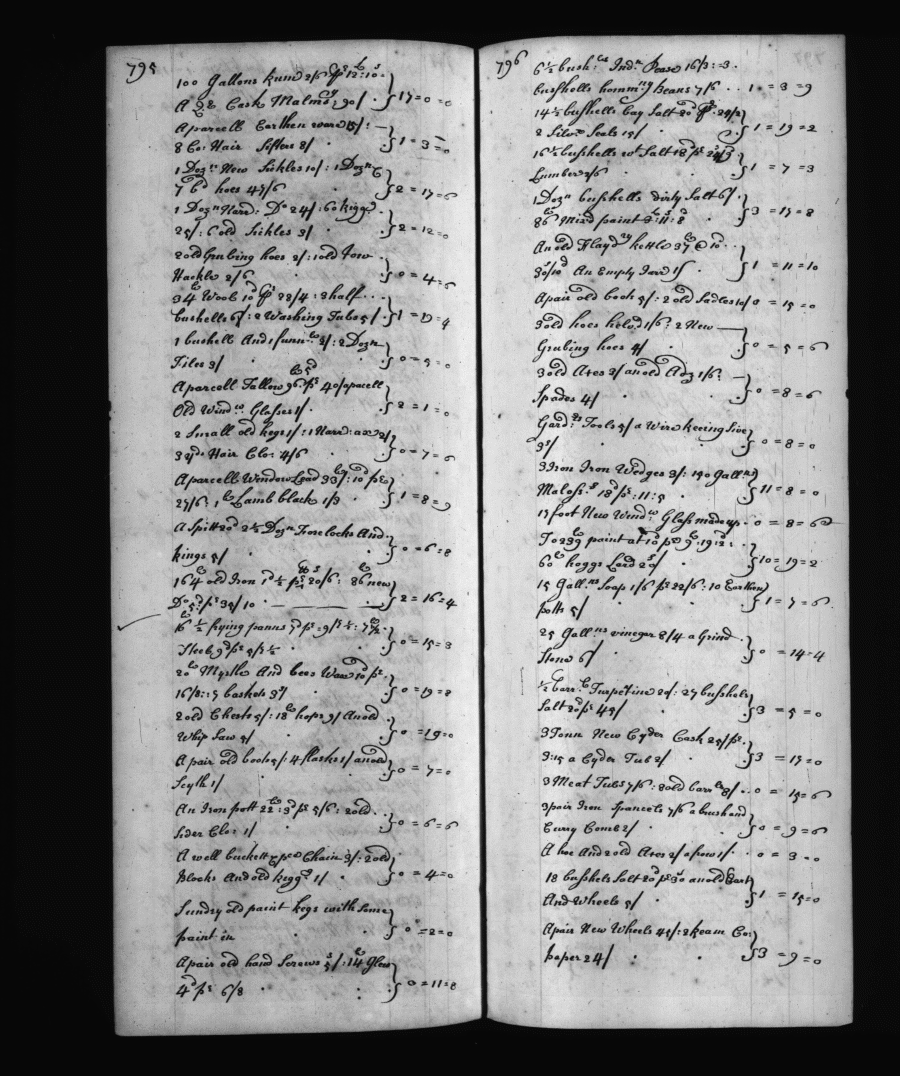 795
100 Gallons Rum 2/6 £12:10
A Qr Cask Malmsy 90/ . } 17=0=0
A parcell Earthen ware 15/: —
8 Co: Hair Sifters 8/ . } 1=3=0
1 Dozn New Sickles 10/: 1 Dozn
7 bd hoes 47/6 } 2=17=6
1 Dozn Narr: Do 24/: 60
25/: 6 old Sickles 3/ . } 2=12=0
2 old Grubing hoes 2/: 1 old Tow
Hackle 2/6 . } 0=4=6
34 Wool 10d 28/4: 3 half
bushells 6/: 2 Washing Tubs 5/ . } 1=19=4
1 bushell And 1 funnl 2/: 2 Dozn
Files 3/ . } 0=5=0
A parcell Tallow 96 5d pr 40/ a pacell
Old Windw: Glasses 1/ . } 2=1=0
2 Small old kegs 1/: 1 Narr: axe 2/
3 yds Hair Clo: 4/6 } 0=7=6
A parcell Window Lead 33: 10d pr
27/6: 1 Lamb black 1/3 . } 1=8=9
A Spitt 20d 2½ Dozn Fore locks And
kings 5/ . } 0=6=8
164 old Iron 1d½ pr 20/6: 86 new
Do 5d: pr 35/10 . } 2=16=4
16½ frying panns 7d pr 9/7½: 7½
Steel 9d pr 5/7½ . } 0=15=3
20 Myrtle And bees Wax 10d pr
16/8: 7 baskets 3/ . } 0=19=8
2 old Chests 5/: 18 hops 9/ An old
Whip Saw 5/ . } 0=19=0
A pair old boots 5/: 4 flasks 1/ an old
Scyth 1/ . } 0=7=0
An Iron pott 22: 3d pr 5/6: 2 old
Sider Clo: 1/ . } 0=6=6
A well buckett & pce Chain 3/: 2 old
Blocks And old kegg 1/ . } 0=4=0
Sundry old paint kegs with Some
paint in . } 0=2=0
A pair old hand Screws 5/: 14 Glew
4d pr 6/8 . } 0=11=8
796
6½ bush: Indn Pease 16/3: 3
bushells hommny beans 7/6 . . 1=3=9
14½ bushells bay Salt 20d pr 24/2
2 Silvr Seals 15/ . } 1=19=2
16½ bushells wt Salt 18d pr 24/9
Lumber 2/6 } 1=7=3
1 Dozn bushells dirty Salt 6/
86 Mixd paint 3:11:8 . } 3=17=8
An old Kettle 37 @ 10d
30/10 An Empty Jarr 1/ . } 1=11=10
A pair old boots 5/: 2 old Sadles 10/ 0=15=0
3 old hoes helvd 1/6: 2 New —
Grubing hoes 4/ . } 0=5=6
3 old Axes 3/ an old Adz 1/6: —
Spades 4/ . } 0=8=6
Gardrs Tools 5/ a Wire keeing Sive
3/ . } 0=8=0
3 Iron Iron Wedges 3/: 150 Gallns
Malossn 18d pr: 11:5 . } 11=8=0
17 foot New Windw: Glass made up . 0=8=6
To 239 paint at 10d pr 9:19:2:
60 hoggs Lard 20/ . } 10=19=2
15 Gallns Soap 1/6 pr 22/6: 10 Earthen
potts 5/ . } 1=7=6
25 Gallns vinegar 8/4 a Grind
Stone 6/ . } 0=14=4
½ barrl Turpetine 20/: 27 bushels
Salt 20d pr 45/ . } 3=5=0
3 Tonn New Cyder Cask 25/ pr
3:15 a Cyder Tub 2/ } 3=17=0
3 Meat Tubs 7/6: 8 old barrls 8/ . . 0=15=6
3 pair Iron Spancels 7/6 a brush and
Curry Comb 2/ . } 0=9=6
A hoe And 2 old Axes 2/ a plow 1/ . . 0=3=0
18 bushels Salt 20d pr 30 an old Cart
And Wheels 5/ . } 1=15=0
A pair New Wheels 45/: 2 Ream Co:
paper 24/ . } 3=9=0